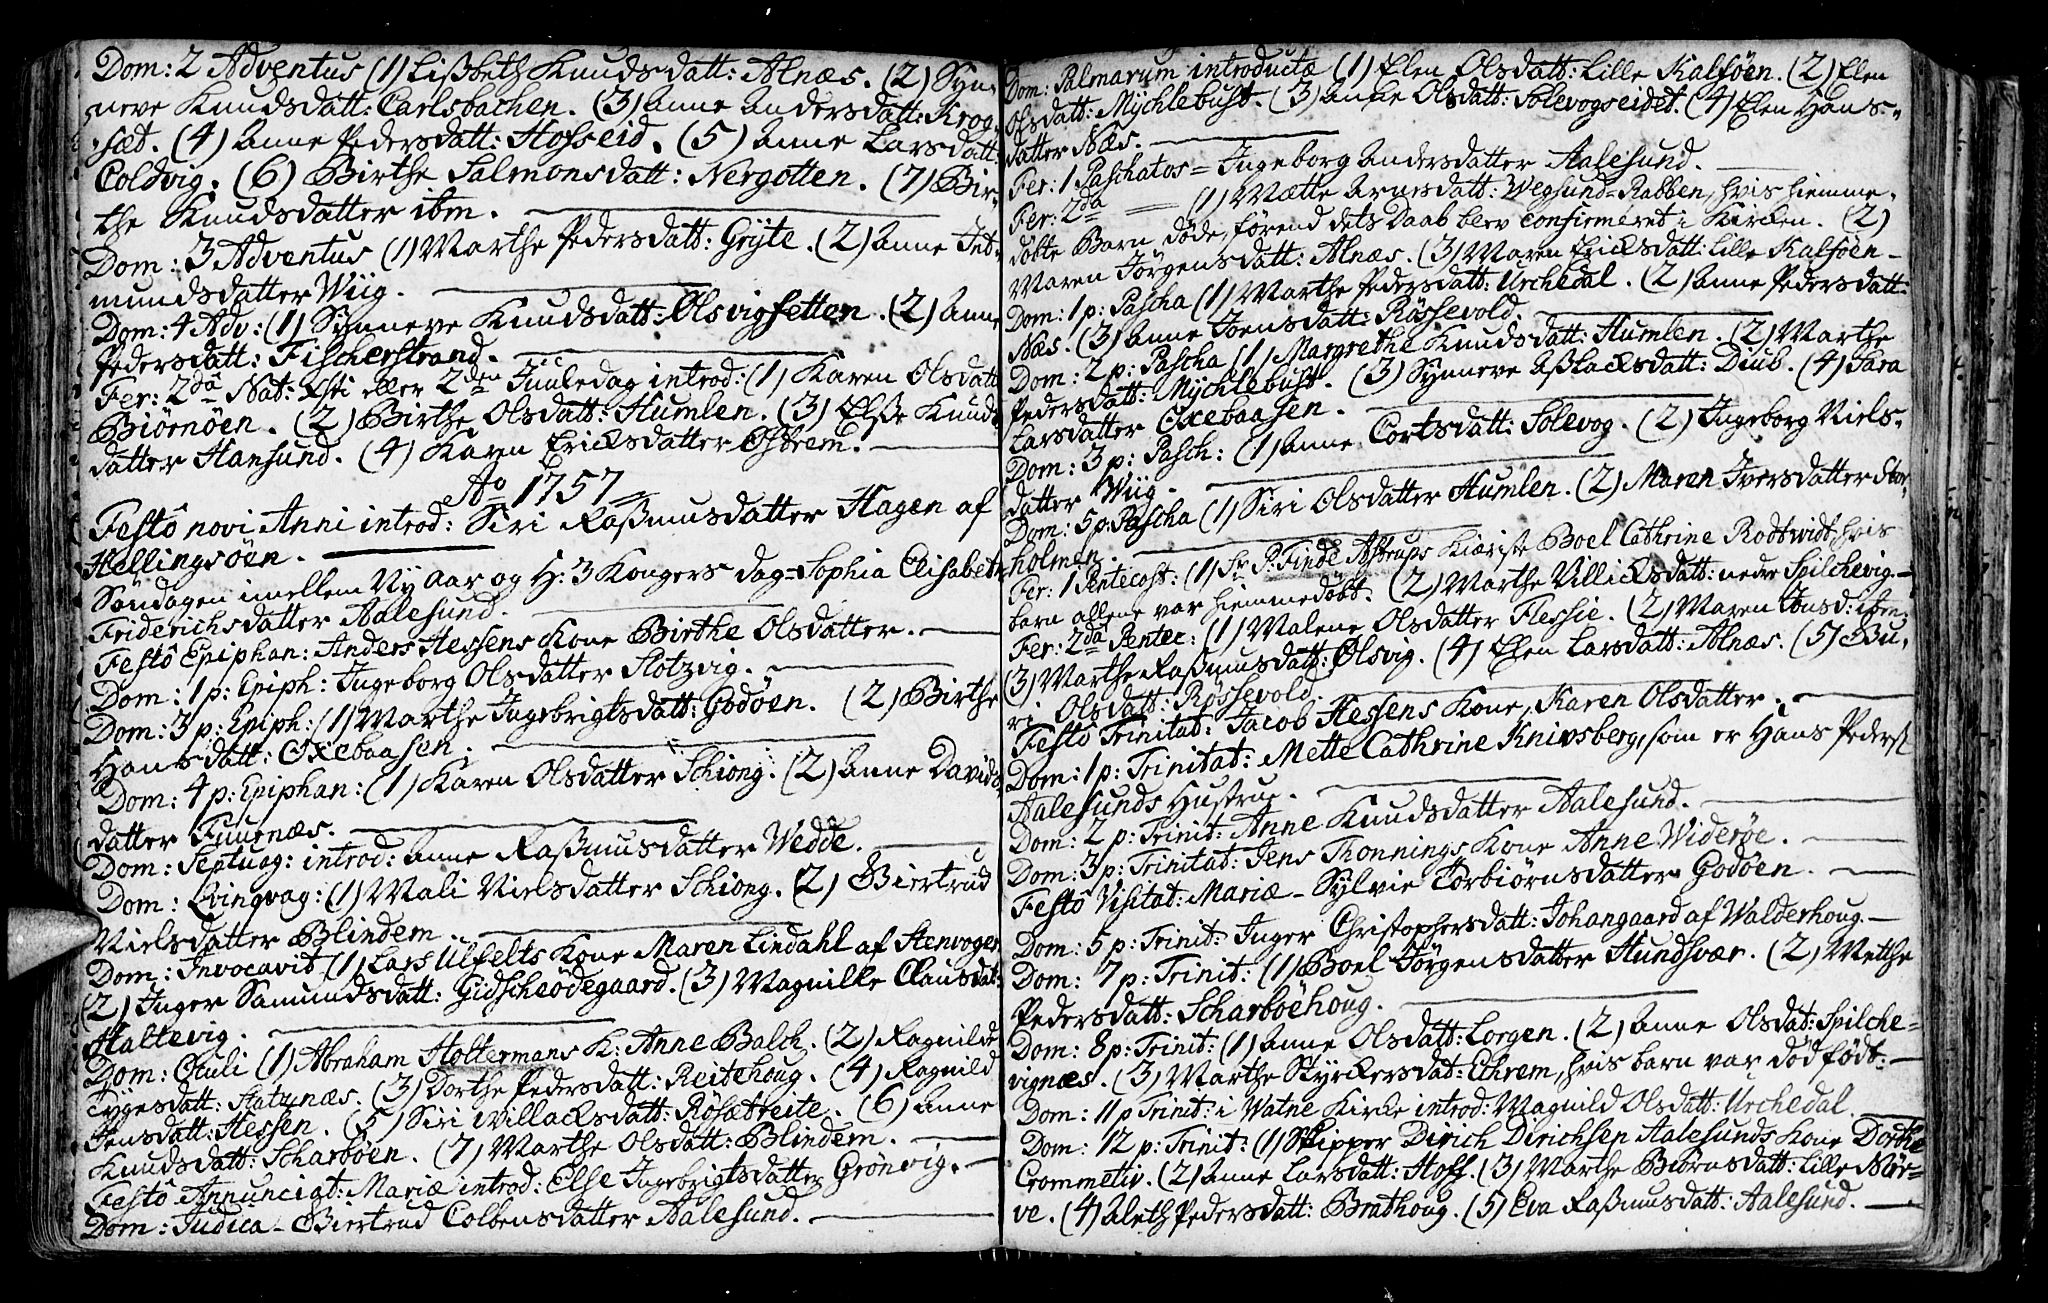 Dom: 2 Adventus (1) Lisbeth Knudsdatt: Alnæs. (2) Syn-
neve Knudsdatt: Carlsbachen. (3) Anne Andersdatt: Krog-
sæt. (4) Anne Pedersdatt: Hosseid. (5) Anne Larsdatt:
Coldvig. (6) Birthe Salmonsdatt: Nergotten. (7) Bir-
the Knudsdatter ibm.
Dom: 3 Adventus (1) Marthe Pedersdatt: Gryte. (2) Anne Jet-
mundsdatter Wiig.
Dom: 4 Adv: (1) Synneve Knudsdatt: Olsvigsetten. (2) Anne
Pedersdatt: Fischerstrand.
Fer: 2da Nat: Xsti eller 2den Juuledag introd: (1) Karen Olsdatt:
Biørnøen. (2) Birthe Olsdatt: Humlen. (3) Else Knuds-
datter Hansund. (4) Karen Ericksdatter Østrem.
Ao 1757
Festô novi Anni introd: Siri Raßmusdatter Hagen af
Hellingsöen.
Søndagen imellem Ny Aar og H: 3 Kongers dag = Sophia Elisabeth
Friderichsdatter Aalesund.
Festô Epiphan: Anders Hessens Kone Birthe Olsdatter.
Dom: 1 p: Epiph: Ingeborg Olsdatter Slotzvig.
Dom: 3 p: Epiph: (1) Marthe Ingebrigtsdatt: Godöen. (2) Birthe
Hansdatt: Oxebaasen.
Dom: 4 p: Epiphan: (1) Karen Olsdatter Schiong. (2) Anne Davids-
datter Fuurnæs.
Dom: Septuag: introd: Anne Raßmusdatter Wedde.
Dom: Qvinqvag: (1) Mali Nielsdatter Schiong. (2) Giertrud
Nielsdatter Blindem.
Dom: Invocavit (1) Lars Ulfelts Kone Maren Lindahl af Stenvogen
(2) Inger Samundsdatt: Gidscheödegaard. (3) Magnilde Clausdat:
Haltevig.
Dom: Oculi (1) Abraham Holtermans K: Anne Balch. (2) Ragnilde
Tygesdatt: Slatunæs. (3) Dorthe Pedersdatt: Reitehoug. (4) Ragnild
Jensdatt: Hessen. (5) Siri Willacksdatt: Rösætreite. (6) Anne
Knudsdatt: Scharböen. (7) Marthe Olsdatt: Blindem.
Festô Annunciat: Mariæ introd: Else Ingebrigtsdatter Grönvig.
Dom: Judica - Giertrud Colbensdatter Aalesund.
Dom: Palmarum introductæ (1) Elen Olsdatt: Lille Kalföen. (2) Elen
Olsdatt: Mychlebust. (3) Anne Olsdatt: Solevogseidet. (4) Elen Hans-
datter Næs.
Fer: 1 Paschatos = Ingeborg Andersdatter Aalesund.
Fer: 2da = (1) Mætte Arnesdatt: Wegsund-Rabben, hvis hiemme-
døbte Barn døde, førend dets Daab blev confirmeret i Kirken. (2)
Maren Jörgensdatt: Alnæs. (3) Maren Ericksdatt: Lille Kalföen -
Dom: 1 p: Pascha (1) Marthe Pedersdatt: Urchedal. (2) Anne Pedersdatt:
Næs. (3) Anne Joensdatt: Rössevold.
Dom: 2 p: Pascha (1) Margrethe Knudsdatt: Humlen. (2) Marthe
Pedersdatt: Mychlebust. (3) Synneve Aßlacksdatt: Diub. (4) Sara
Larsdatter Oxebaasen.
Dom: 3 p: Pasch: (1) Anne Cortsdatt: Solevog. (2) Ingeborg Niels-
datter Wiig.
Dom: 5 p: Pascha (1) Siri Olsdatter Humlen. (2) Maren Iversdatter Stor-
holmen.
Fer: 1 Pentecost: (1) Sr P: Finde Astrups Kiæriste Boel Cathrine Rodtwidt, hvis
barn allene var hiemmedöbt. (2) Marthe Villicksdatt: nedre Spilchevig.
Fer: 2da Pentec: (1) Malene Olsdatter Flessie. (2) Maren Jonsd: ibm:
(3) Marthe Raßmusdatt: Olsvig. (4) Elen Larsdatt: Alnæs. (5) Gu-
ri Olsdatt: Rössevold.
Festô Trinitat: Jacob Hessens Kone, Karen Olsdatter.
Dom: 1 p: Trinitat: Mette Cathrine Knivsberg, som er Hans Peders:
Aalesunds Hustrue.
Dom: 2 p: Trinit: Anne Knudsdatter Aalesund.
Dom: 3 p: Trinitat: Jens Thonnings Kone Anne Widerøe.
Festô Visitat: Mariæ - Sylvie Torbiörnsdatter Godöen.
Dom: 5 p: Trinit: Inger Christophersdatt: Johangaard af Walderhoug.
Dom: 7 p: Trinit: (1) Boel Jörgensdatter Hundsvær. (2) Mætthe
Pedersdatt: Scharböehoug.
Dom: 8 p: Trinit: (1) Anne Olsdatt: Lorgen. (2) Anne Olsdat: Spilche-
vignæs. (3) Marthe Styrckersdat: Echrem, hvis barn var død født.
Dom: 11 p Trinit: i Watne Kirke introd: Magnild Olsdatt: Urchedal.
Dom: 12 p: Trinit: (1) Skipper Dirich Dirichsen Aalesunds Kone Dorthe
Crommetiv. (2) Anne Larsdatt: Hoff. (3) Marthe Biörnsdatt: Lille Nör-
ve. (4) Aleth Pedersdatt: Brathoug. (5) Eva Raßmusdatt: Aalesund.